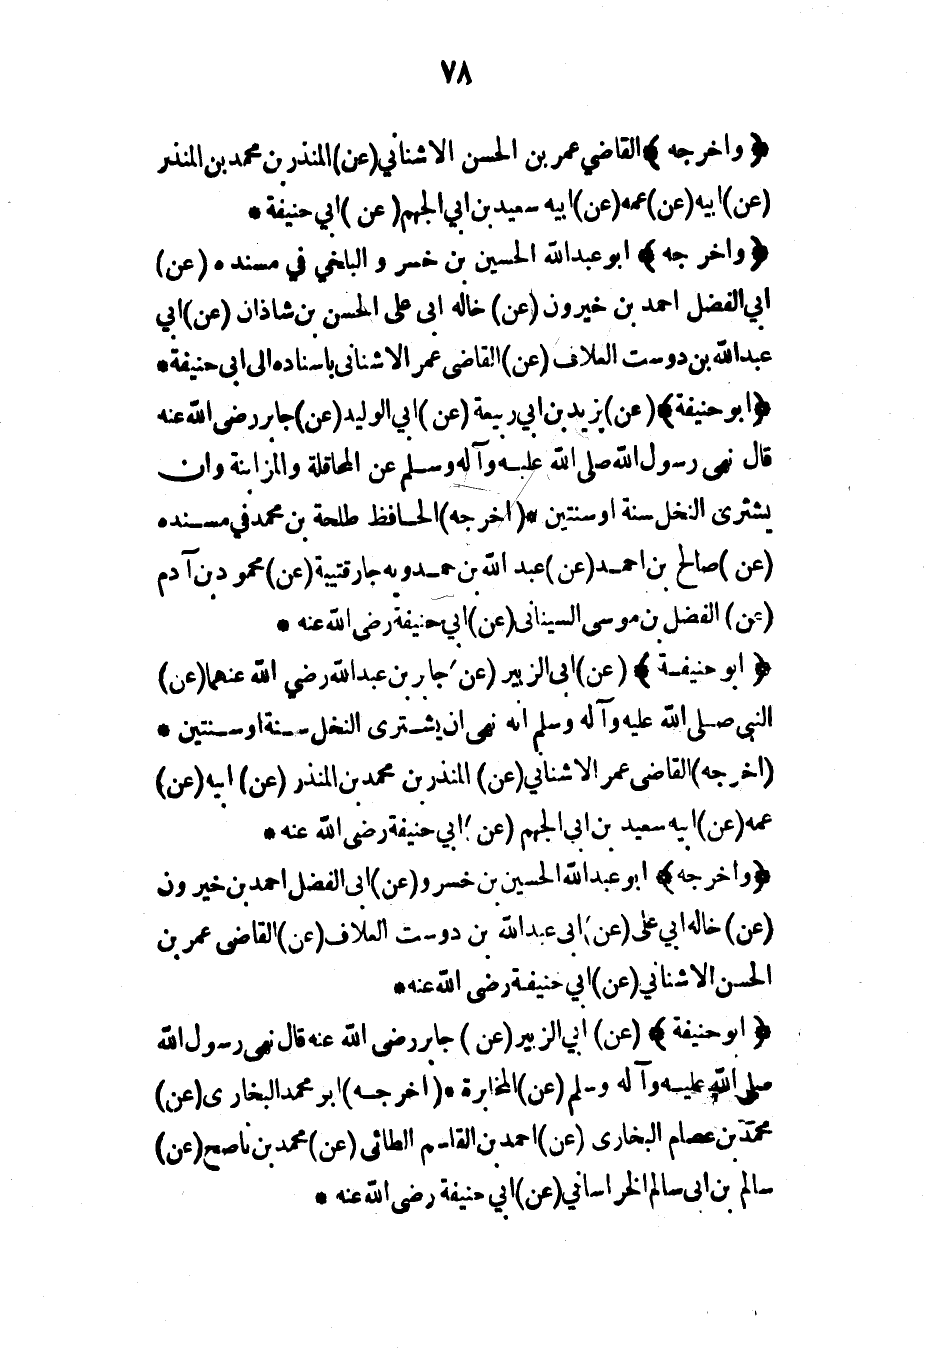 ٧٨
﴿ واخرجه ﴾ القاضي عمر بن الحسن الاشناني (عن) المنذر بن محمد بن المنذر
(عن) ابيه (عن) عمه (عن) ابيه سعيد بن ابي الجهم (عن) ابي حنيفة *
﴿ واخرجه ﴾ ابو عبدالله الحسين بن خسرو البلخي في مسنده (عن)
ابي الفضل احمد بن خيرون (عن) خاله ابى على الحسن بن شاذان (عن) ابي
عبدالله بن دوست العلاف (عن) القاضى عمر الاشنانى باسناده الى ابى حنيفة *
﴿ ابو حنيفة ﴾ (عن) يزيد بن ابي ربيعة (عن) ابي الوليد (عن) جابر رضى الله عنه
قال نهى رسول الله صلى الله عليه وآله وسلم عن المحاقلة والمزابنة وان
يشترى النخل سنة او سنتين * (اخرجه) الحافظ طلحة بن محمد في مسنده
(عن) صالح بن احمد (عن) عبد الله بن حمدويه جار قتيبة (عن) محمود بن آدم
(عن) الفضل بن موسى السينانى (عن) ابي حنيفة رضى الله عنه *
﴿ ابو حنيفة ﴾ (عن) ابى الزبير (عن) جابر بن عبدالله رضي الله عنهما (عن)
النبى صلى الله عليه وآله وسلم انه نهى ان يشترى النخل سنة او سنتين *
(اخرجه) القاضى عمر الاشناني (عن) المنذر بن محمد بن المنذر (عن) ابيه (عن)
عمه (عن) ابيه سعيد بن ابي الجهم (عن) ابي حنيفة رضى الله عنه *
﴿ واخرجه ﴾ ابو عبدالله الحسين بن خسرو (عن) ابى الفضل احمد بن خيرون
(عن) خاله ابي على (عن) ابى عبدالله بن دوست العلاف (عن) القاضى عمر بن
الحسن الاشناني (عن) ابي حنيفة رضى الله عنه *
﴿ ابو حنيفة ﴾ (عن) ابي الزبير (عن) جابر رضى الله عنه قال نهى رسول الله
صلى الله عليه وآله وسلم (عن) المخابرة * (اخرجه) ابو محمد البخارى (عن)
محمد بن عصام البخارى (عن) احمد بن القاسم الطائى (عن) محمد بن ناصح (عن)
سالم بن ابى سالم الخراساني (عن) ابي حنيفة رضى الله عنه *